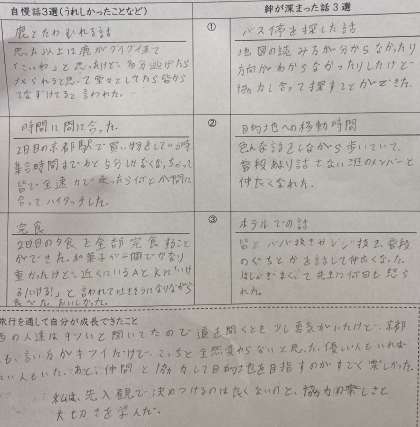 自慢話3選(うれしかったことなど)
絆が深まった話3選
①
鹿とたわむれる話
思った以上に鹿がグイグイきて
「こいや」と思ったけど、
なめられると思って堂々としてたら
てなずけてると言われた。
バス停を探した話
地図の読みるが分からなかったり
方向がわからなかったりしたけど
協力し合って探すことができた。
②
時間に間に合った。
2日目の京都駅で買い物をしている時
集合時間まであと5分しかなくなっちゃって
皆で全速力で走ったら何とか間に
合ってハイタッチした。
目的地への移動時間
色んな話をしながら歩いていて、
普段あまり話さない班のメンバーと
仲良くなれた。
③
完食
2日目の夕食を全部完食すること
ができた。お菓子が一個でかなり
重かったけど、近くにいるAとKに「いけ
る!いける!」と言われて吐きそうになりながら
食べた。おいしかった。
ホテルでの話
皆とババ抜きやジジ抜き、普段
のぐちとかを話して仲良くなった。
はしゃぎまくって先生に何回も怒ら
れた。
旅行を通して自分が成長できたこと
西の人達はキツいと聞いてたので道を聞くとき少し勇気がいたけど、京都
も、言い方がキツイだけで、こっちと全然変わらないと思った。優しい人もいれば
い人もいた。あと、仲間と協力して目的地を目指すのがすごく楽しかった。
私は、先入観で決めつけるのは良くないのと、協力の楽しさと
大切さを学んだ。